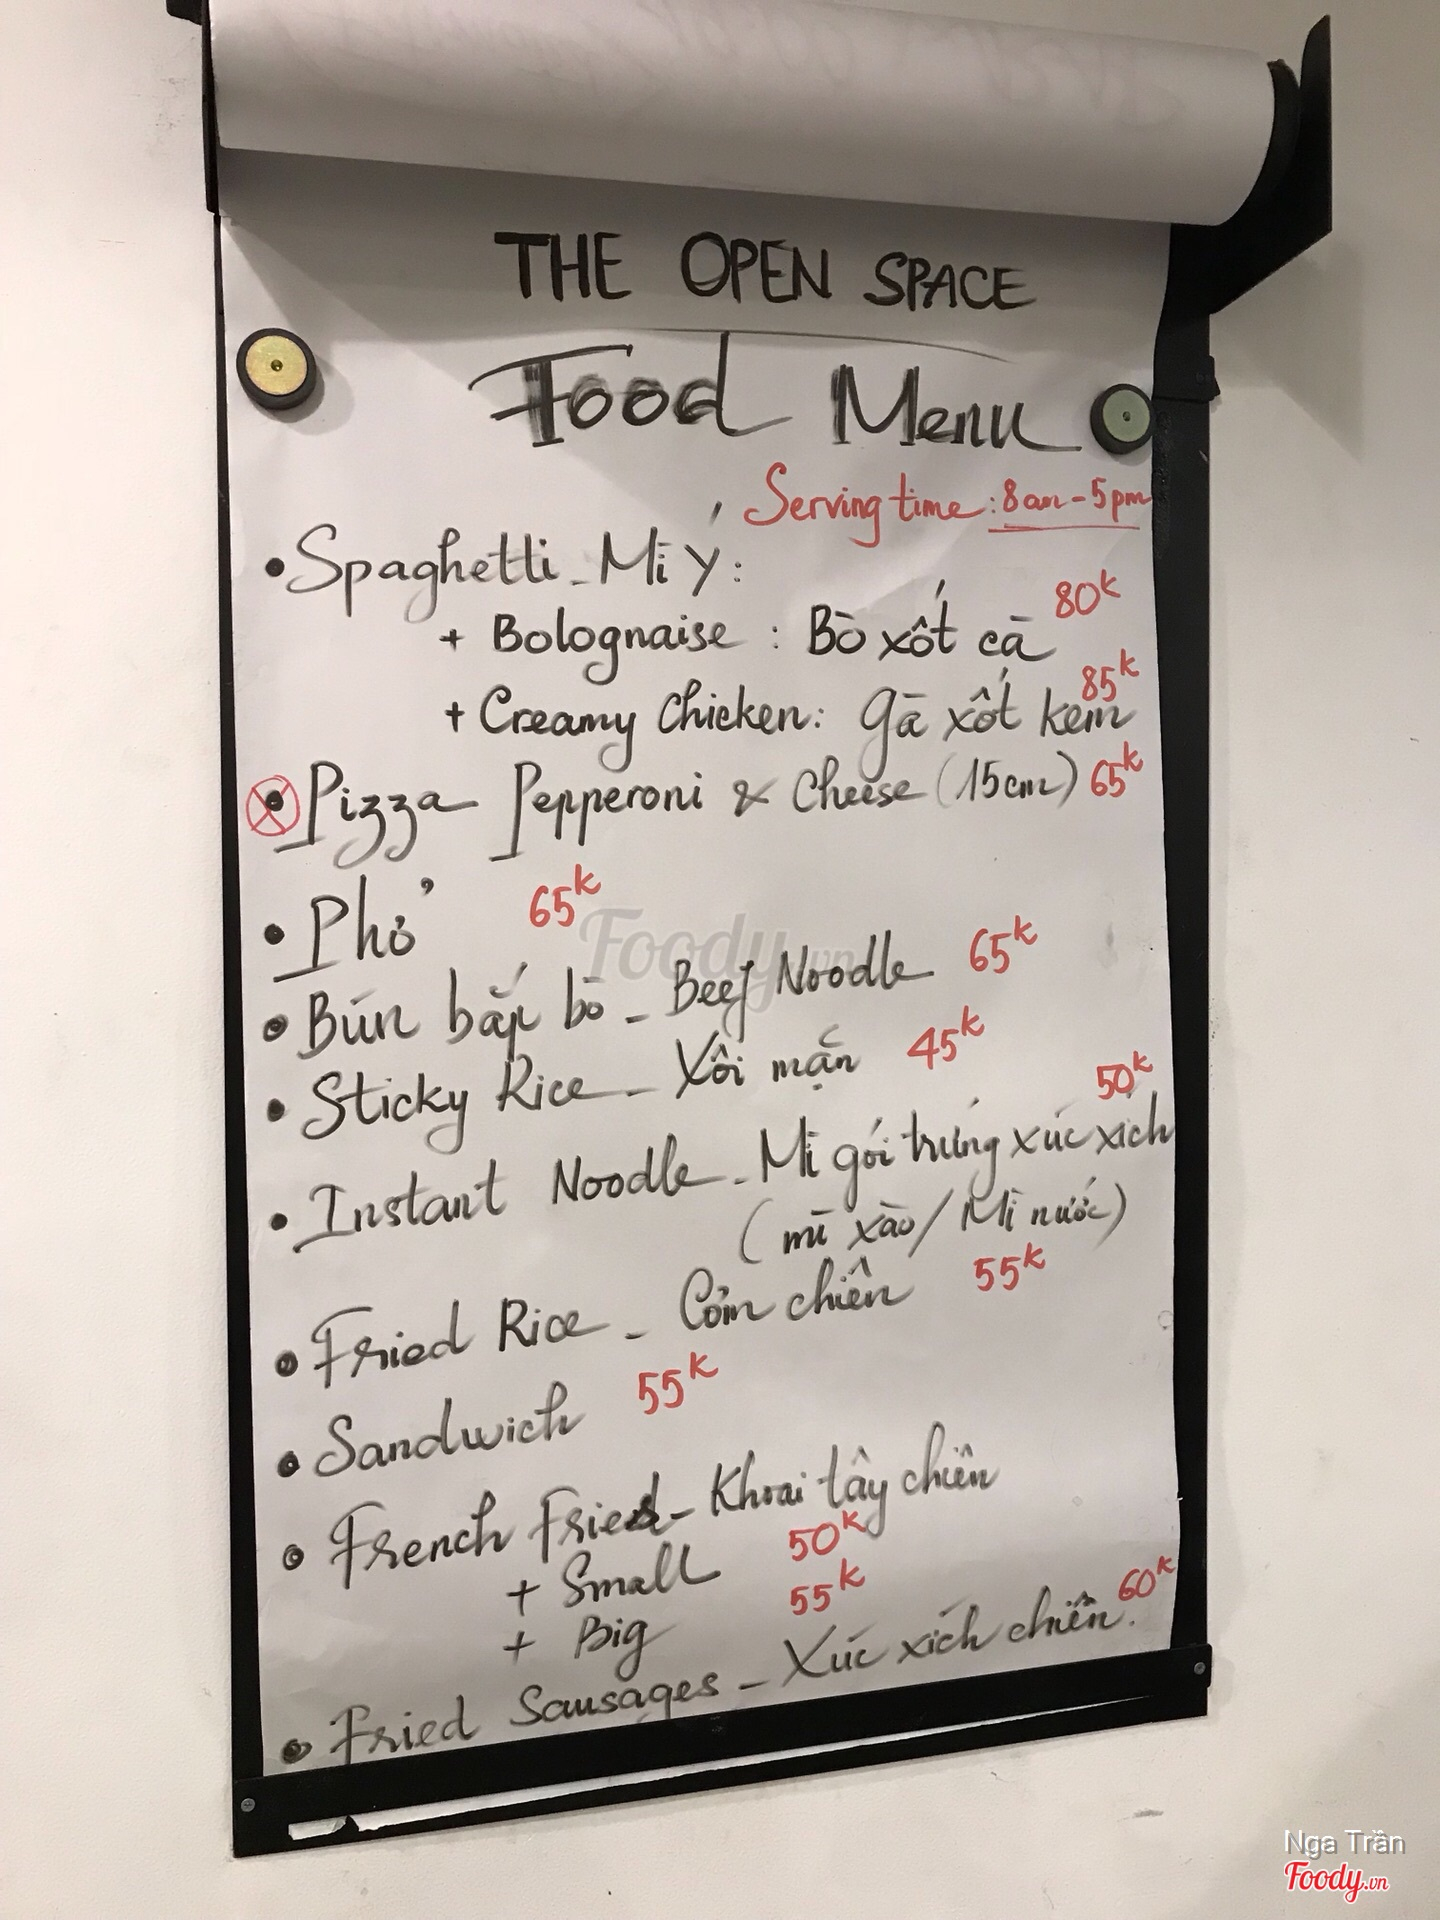 THE OPEN SPACE
Food Menu
Serving time: 8am-5pm
• Spaghetti - Mì Ý:
+ Bolognaise : Bò xốt cà 80K
+ Creamy Chicken: gà xốt kem 85K
• Pizza Pepperoni & Cheese (15cm) 65K
• Phở 65K
• Bún bắp bò - Beef Noodle 65K
• Sticky Rice - Xôi mặn 45K
• Instant Noodle - Mì gói trứng xúc xích 50K
(mì xào/Mì nước)
• Fried Rice - Cơm chiên 55K
• Sandwich 55K
• French Fries - Khoai tây chiên
+ Small 50K
+ Big 55K
• Fried Sausages - Xúc xích chiên. 60K
Foody.vn
Nga Trần
Foody.vn